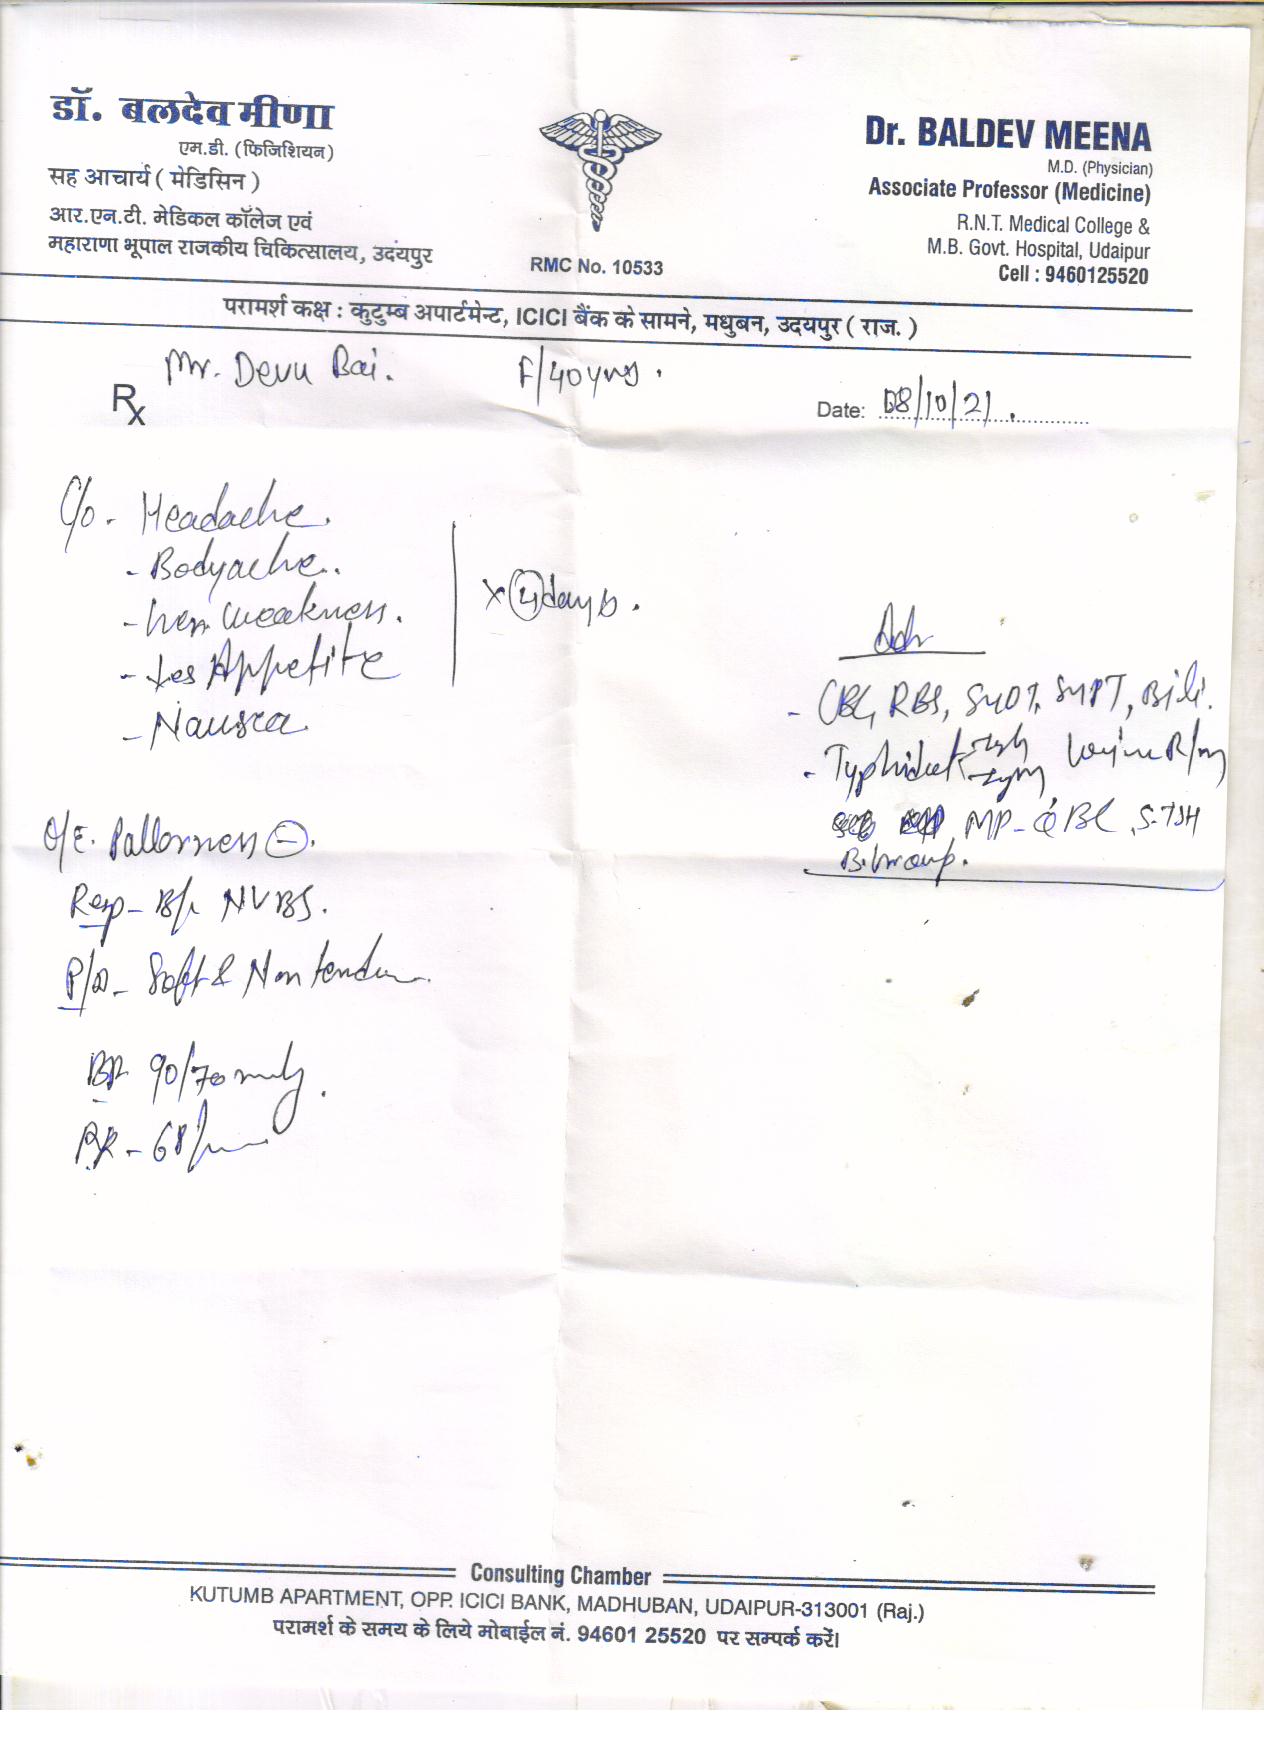 डॉ. बलदेव मीणा
एम.डी. (फिजिशियन)
सह आचार्य ( मेडिसिन )
आर.एन.टी. मेडिकल कॉलेज एवं
महाराणा भूपाल राजकीय चिकित्सालय, उदयपुर
RMC No. 10533
Dr. BALDEV MEENA
M.D. (Physician)
Associate Professor (Medicine)
R.N.T. Medical College &
M.B. Govt. Hospital, Udaipur
Cell : 9460125520
परामर्श कक्ष : कुटुम्ब अपार्टमेन्ट, ICICI बैंक के सामने, मधुबन, उदयपुर ( राज. )
Mr. Devu Bai. F/40yrs.
Rx
Date: 08/10/21.
C/o - Headache.
- Bodyache.
- Gen. Weakness.
- ↓es Appetite
- Nausea
x 4 days.
Adv
- CBC, RBS, SGOT, SGPT, Bili.
- Typhidot IgG IgM, Urine R/m
MP-QBC, S-TSH
B.Group.
O/E. Pallorness ⊖.
Resp - B/L NVBS.
P/A - Soft & Non tender
BP 90/70 mmHg.
PR - 68/min
Consulting Chamber
KUTUMB APARTMENT, OPP. ICICI BANK, MADHUBAN, UDAIPUR-313001 (Raj.)
परामर्श के समय के लिये मोबाईल नं. 94601 25520 पर सम्पर्क करें।